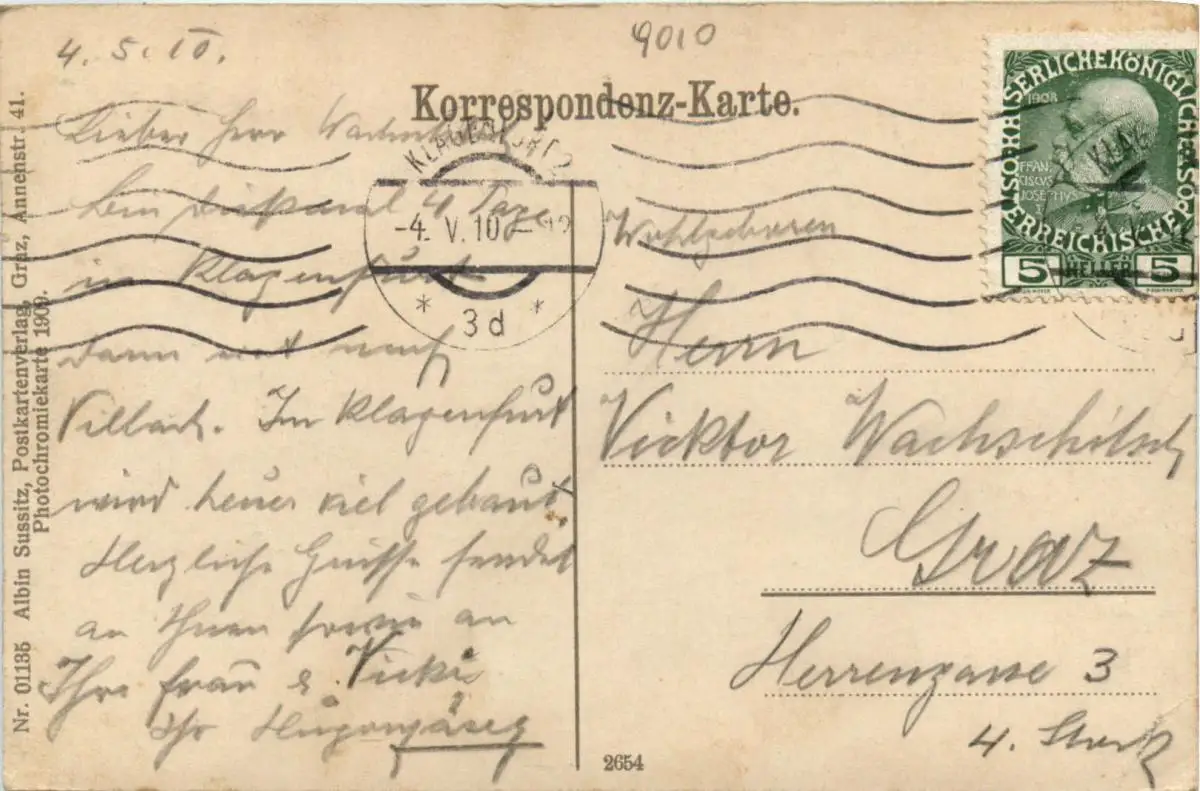 4. 5. 10.
9010
Korrespondenz-Karte.
Lieber Herr
4 Tage
in Klagenfurt
dann erst nach
Villach. In Klagenfurt
wird heuer viel gebaut.
Herzliche Grüsse sendet
an Ihnen sowie an
Ihre Frau & Vicki
Ihr
KLAGENFURT 2
-4. V. 10
* 3d *
Wohlgeboren
Herrn
Vicktor Wachschütsch
Graz
Herrengasse 3
4. Stock
KAISERLICHE KÖNIGLICHE
ÖSTERREICHISCHE POST
1908
FRAN
CISCVS
JOSEPH I
5 HELLER 5
KLAG
Nr. 01135 Albin Sussitz, Postkartenverlag, Graz, Annenstr. 41.
Photochromiekarte 1909.
2654